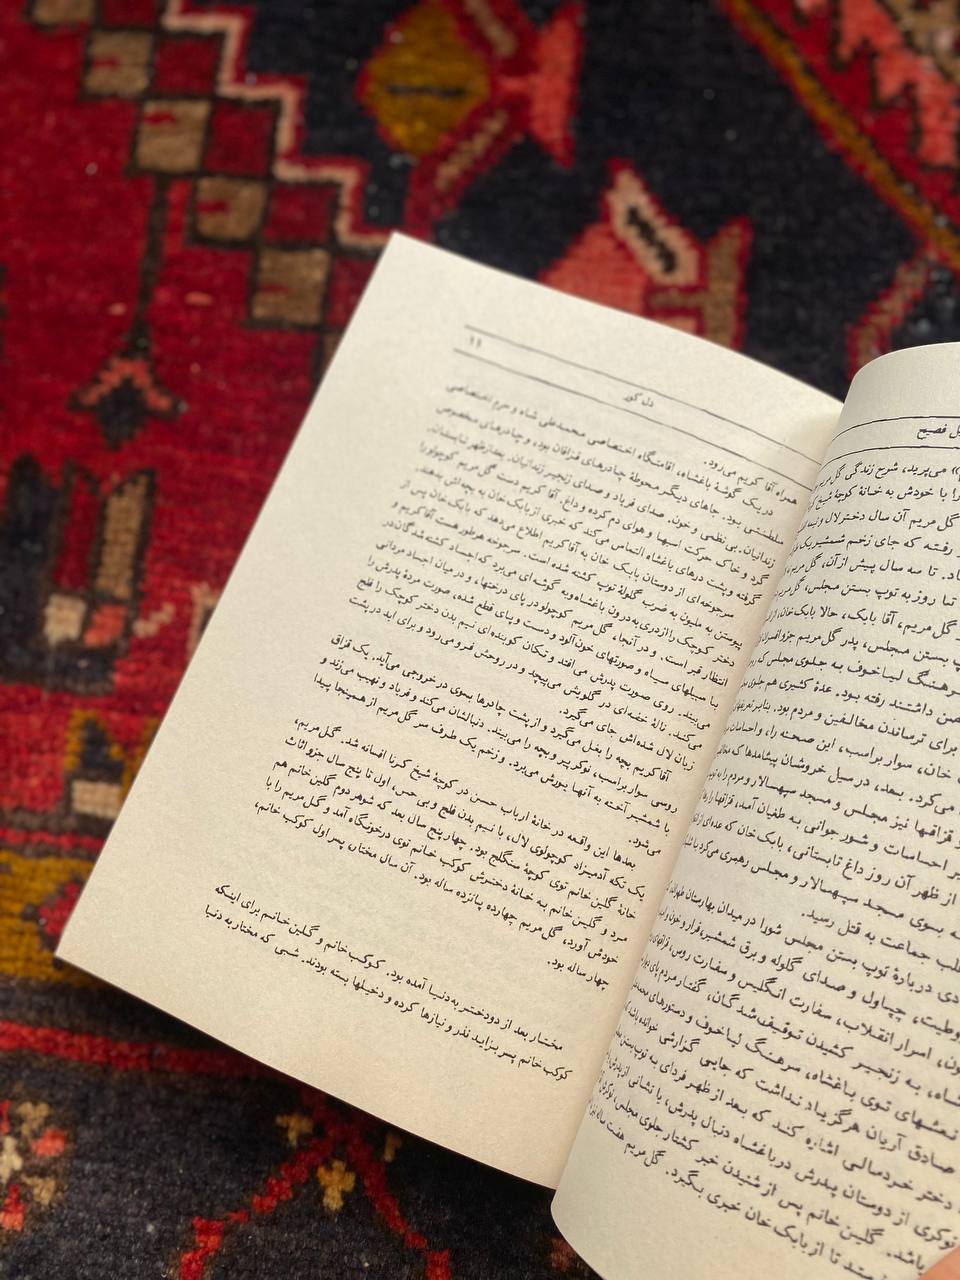 ۱۱
دل کور
همراه آقا کریم می‌رود.
در یک گوشهٔ باغشاه، اقامتگاه اختصاصی محمدعلی شاه و حرم اختصاصی
سلطنتی بود. جاهای دیگر محوطهٔ چادرهای قزاقان بود، و چادرهای مخصوص
زندانیان. بی نظمی و خون. صدای فریاد و صدای زنجیر زندانیان. بعدازظهر تابستان،
گرد و خاک حرکت اسبها و هوای دم کرده و داغ. آقا کریم دست گل مریم کوچولو را
گرفته و پشت درهای باغشاه التماس می‌کند که خبری از بابک خان به بچه‌اش بدهند.
سرجوخه‌ای از دوستان بابک خان به آقا کریم اطلاع می‌دهد که بابک خان پس از
پیوستن به ملیون به ضرب گلولهٔ توپ کشته شده است. سرجوخه هرطور هست آقا کریم و
دختر کوچک را از دری به درون باغشاه و به گوشه‌ای می‌برد که اجساد کشته شدگان در
انتظار قبر است. و در آنجا، گل مریم کوچولو در پای درختها، و در میان اجساد مردانی
با سبیلهای سیاه و صورتهای خون‌آلود و دست و پای قطع شده، صورت مردهٔ پدرش را
می‌بیند. روی صورت پدرش می‌افتد و تکان کوبنده‌ای نیم بدن دختر کوچک را فلج
می‌کند. نالهٔ خفه‌ای در گلویش می‌پیچد و در روحش فرو می‌رود و برای ابد در پشت
زبان لال شده‌اش جای می‌گیرد.
آقا کریم بچه را بغل می‌گیرد و از پشت چادرها بسوی در خروجی می‌آید. یک قزاق
روسی سوار براسب، نوکر پیر و بچه را می‌بیند. دنبالشان می‌کند و فریاد و نهیب می‌زند و
با شمشیر آخته به آنها یورش می‌برد. و زخم یک طرف سر گل مریم از همینجا پیدا
می‌شود.
بعدها این واقعه در خانهٔ ارباب حسن در کوچهٔ شیخ کرنا افسانه شد. گل مریم،
یک تکه آدمیزاد کوچولوی لال، با نیم بدن فلج و بی حس، اول تا پنج سال جزو اثاث
خانهٔ گلین خانم توی کوچهٔ سنگلج بود. چهار پنج سال بعد که شوهر دوم گلین خانم هم
مرد و گلین خانم به خانهٔ دخترش کوکب خانم توی درخونگاه آمد و گل مریم را با
خودش آورد، گل مریم چهارده پانزده ساله بود. آن سال مختار، پسر اول کوکب خانم،
چهار ساله بود.
مختار بعد از دو دختر به دنیا آمده بود. کوکب خانم و گلین خانم برای اینکه
کوکب خانم پسر بزاید نذر و نیازها کرده و دخیلها بسته بودند. شبی که مختار به دنیا
فصیح
می‌پرید، شرح زندگی گل مریم
با خودش به خانهٔ کوچهٔ شیخ
گل مریم آن سال دختر لال و نیمه
رفته که جای زخم شمشیر یک
تا سه سال پیش از آن، گل مریم
تا روز به توپ بستن مجلس، گل مریم
گل مریم، آقا بابک، حالا بابک خان، از
بستن مجلس، پدر گل مریم جزو افسران
سرهنگ لیاخوف به جلوی مجلس که
تحصن داشتند رفته بود. عدهٔ کثیری هم جلوی
برای ترماندن مخالفین و مردم بود. بنابر
خان، سوار براسب، این صحنه را، و احساسات
می‌کرد. بعد، در سیل خروشان پیشامدها که
قزاقها نیز مجلس و مسجد سپهسالار و مردم را به
احساسات و شور جوانی به طغیان آمد، قزاقها را
از ظهر آن روز داغ تابستانی، بابک خان که عده‌ای از
به سوی مسجد سپهسالار و مجلس رهبری می‌کرد با
جماعت به قتل رسید.
دربارهٔ توپ بستن مجلس شورا در میدان بهارستان طهران
چپاول و صدای گلوله و برق شمشیر، فرار و خون و
اسرار انقلاب، سفارت انگلیس و سفارت روس، قزاقهای
به زنجیر کشیدن توقیف شدگان، گفتار مردم پای
نعشهای توی باغشاه، سرهنگ لیاخوف و دستورهای
صادق آریان هرگز یاد نداشت که جایی گزارشی خوانده باشد
دختر خردسالی اشاره کند که بعد از ظهر فردای به توپ بستن
نوکری از دوستان پدرش در باغشاه دنبال پدرش، یا نشانی از پدرش
باشد. گلین خانم پس از شنیدن خبر کشتار جلوی مجلس، نوکرش
تا از بابک خان خبری بگیرد. گل مریم هفت ساله نیز